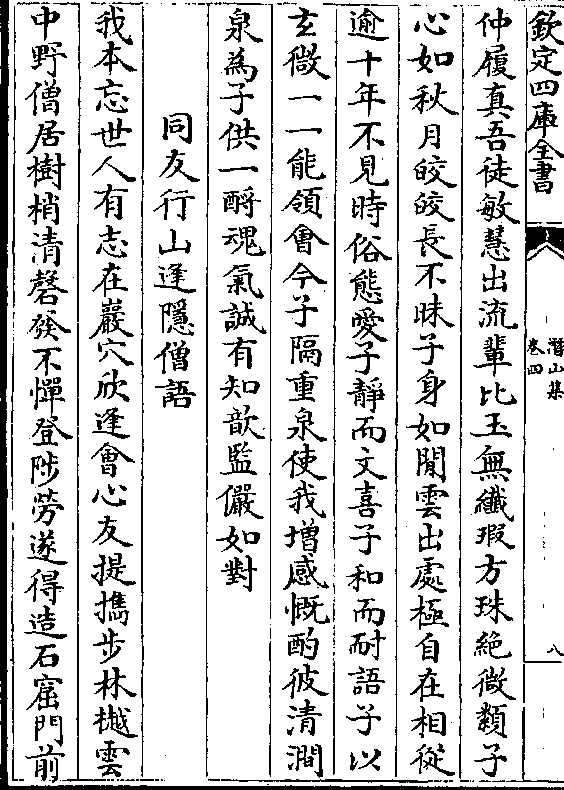 欽定四庫全書
潛山集
卷四
八
仲履真吾徒敏慧出流輩比玉無纖瑕方珠絶微纇子
心如秋月皎皎長不昧子身如閒雲出處極自在相從
逾十年不見時俗態愛子靜而文喜子和而耐語子以
玄微一一能領會今子隔重泉使我増感慨酌彼清澗
泉為子供一酹魂氣誠有知歆監儼如對
同友行山逢隱僧語
我本忘世人有志在巖穴欣逢會心友提攜步林樾雲
中野僧居樹梢清磬發不憚登陟勞遂得造石窟門前